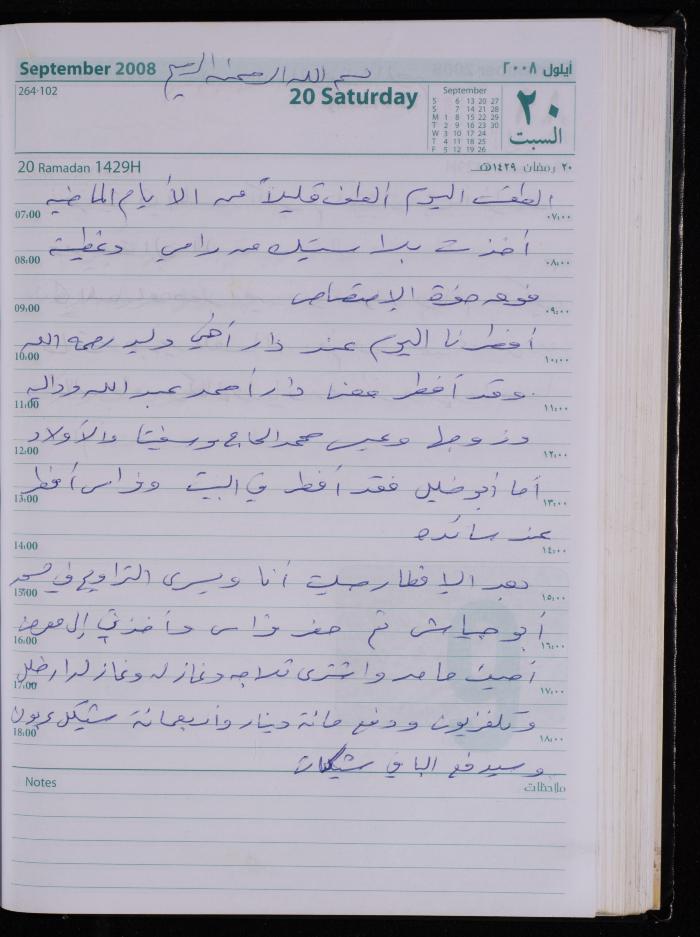 بسم الله الرحمن الرحيم
September 2008
أيلول ٢٠٠٨
264-102
20 Saturday
September
S 6 13 20 27
S 7 14 21 28
M 1 8 15 22 29
T 2 9 16 23 30
W 3 10 17 24
T 4 11 18 25
F 5 12 19 26
٢٠
السبت
20 Ramadan 1429H
٢٠ رمضان ١٤٢٩هـ
الطقس اليوم ألطف قليلاً من الأيام الماضيه
07:00 ٠٧:٠٠
أخذت بلاستيك من رامي وغطيت
08:00 ٠٨:٠٠
فوهه حفرة الإمتصاص
09:00 ٠٩:٠٠
أفطرنا اليوم عند دار أخي وليد رحمه الله
10:00 ١٠:٠٠
وقد أفطر معنا دار أحمد عبد الله وداليه
11:00 ١١:٠٠
وزوجها وعيسى محمد الحاج والأولاد
12:00 ١٢:٠٠
أما أبو خليل فقد أفطر في البيت وفراس أفطر
13:00 ١٣:٠٠
عند سائده
14:00 ١٤:٠٠
بعد الإفطار صليت أنا ويسرى التراويح في مسجد
15:00 ١٥:٠٠
أبو عياش ثم حضر فراس وأخذني إلى معرض
16:00 ١٦:٠٠
حامد واشترى ثلاجه وغاز له وغاز لدار خليل
17:00 ١٧:٠٠
وتلفزيون ودفع مائة دينار وأربعمائة شيكل عربون
18:00 ١٨:٠٠
وسيدفع الباقي شيكات
Notes
ملاحظات